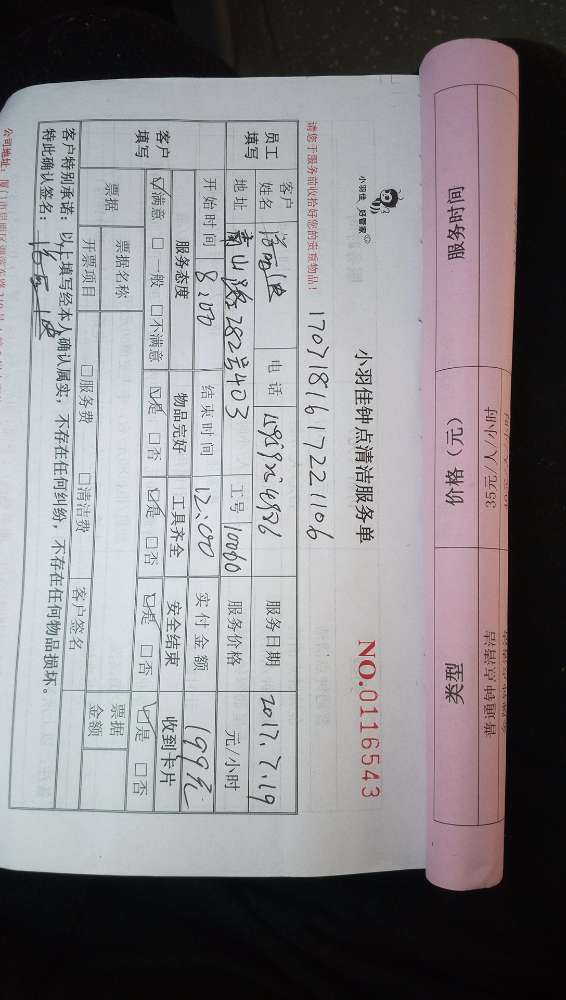 服务时间 价格（元） 类型
35元/人/小时 普通钟点清洁
小羽佳 好管家
小羽佳钟点清洁服务单 NO.0116543
请您于服务前收拾好您的贵重物品！
1707181617221106
员工填写 客户姓名 电话 服务日期 2017.7.19
地址 南山路282号403 工号 10060 服务价格 元/小时
开始时间 8:00 结束时间 12:00 实付金额 199元
客户填写 服务态度 物品完好 工具齐全 安全结束 收到卡片
☑满意 □一般 □不满意 ☑是 □否 ☑是 □否 ☑是 □否 ☑是 □否
票据 票据名称 票据金额
开票项目 □服务费 □清洁费 客户签名
客户特别承诺：以上填写经本人确认属实，不存在任何纠纷，不存在任何物品损坏。
特此确认签名：
公司地址：厦门市